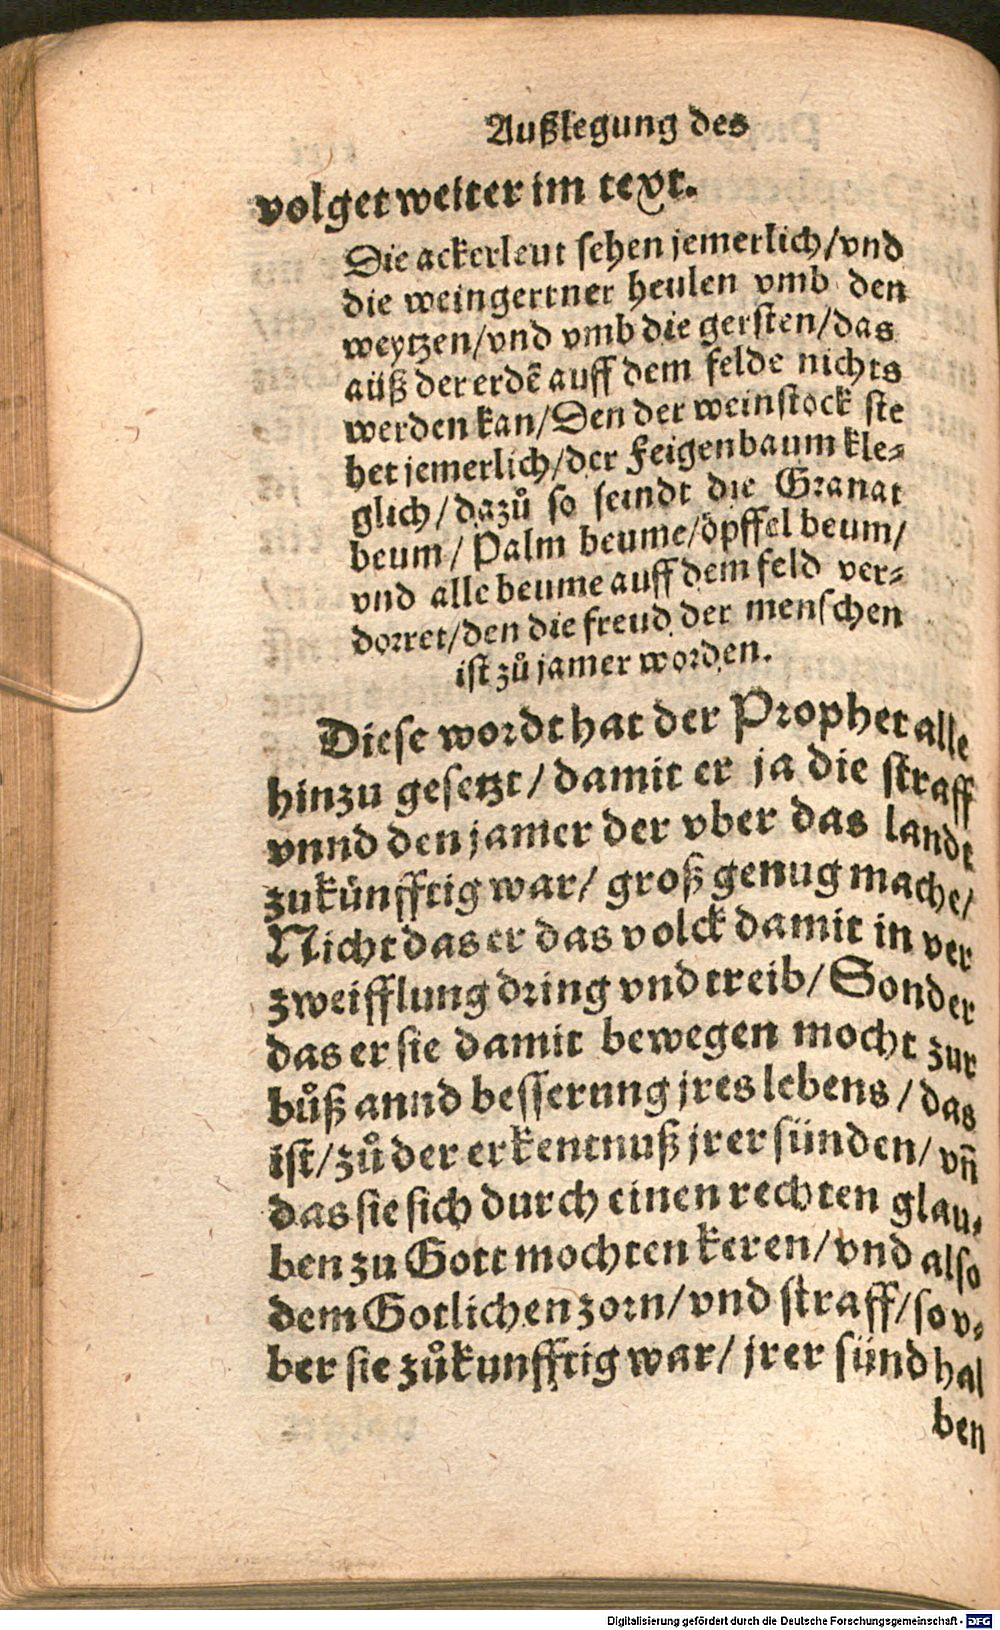 Außlegung des
volget weiter im text.
Die ackerleut sehen jemerlich/vnd
die weingertner heulen vmb den
weytzen/vnd vmb die gersten/das
aüß der erdẽ auff dem felde nichts
werden kan/Den der weinstock ste
het jemerlich/der Feigenbaum kle⸗
glich/dazů so seindt die Granat
beum/Palm beume/öpffel beum/
vnd alle beume auff dem feld ver⸗
dorret/den die freud der menschen
ist zů jamer worden.
Diese wordt hat der Prophet alle
hinzu gesetzt/damit er ja die straff
vnnd den jamer der vber das landt
zukünfftig war/ groß genug mache/
Nicht das er das volck damit in ver
zweifflung dring vnd treib/Sonder
das er sie damit bewegen mocht zur
bůß annd besserung jres lebens/das
ist/zů der erkentnuß jrer sünden/vñ
das sie sich durch einen rechten glau⸗
ben zu Gott mochten keren/vnd also
dem Gotlichen zorn/vnd straff/so v⸗
ber sie zůkunfftig war/jrer sünd hal
ben
Digitalisierung gefördert durch die Deutsche Forschungsgemeinschaft - DFG